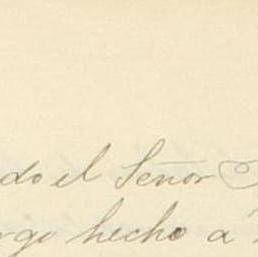 do el Señor
go hecho a